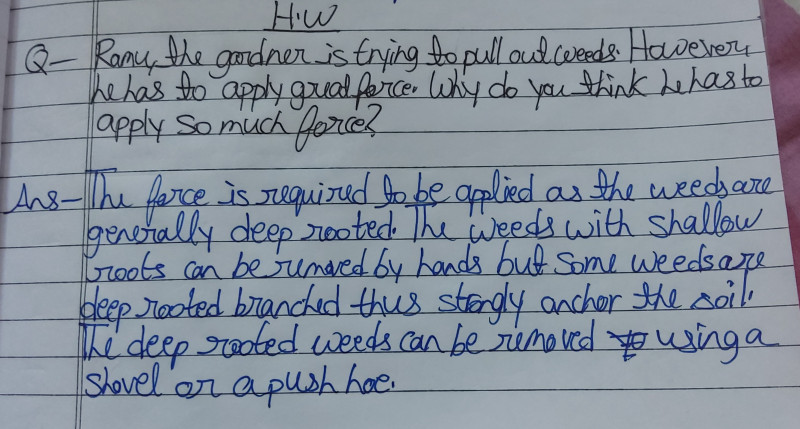 H.W
Q- Ramu, the gardner is trying to pull out weeds. However,
he has to apply great force. Why do you think he has to
apply so much force?
Ans- The force is required to be applied as the weeds are
generally deep rooted. The weeds with shallow
roots can be removed by hands but some weeds are
deep rooted branched thus stongly anchor the soil.
The deep rooted weeds can be removed using a
shovel or a push hoe.